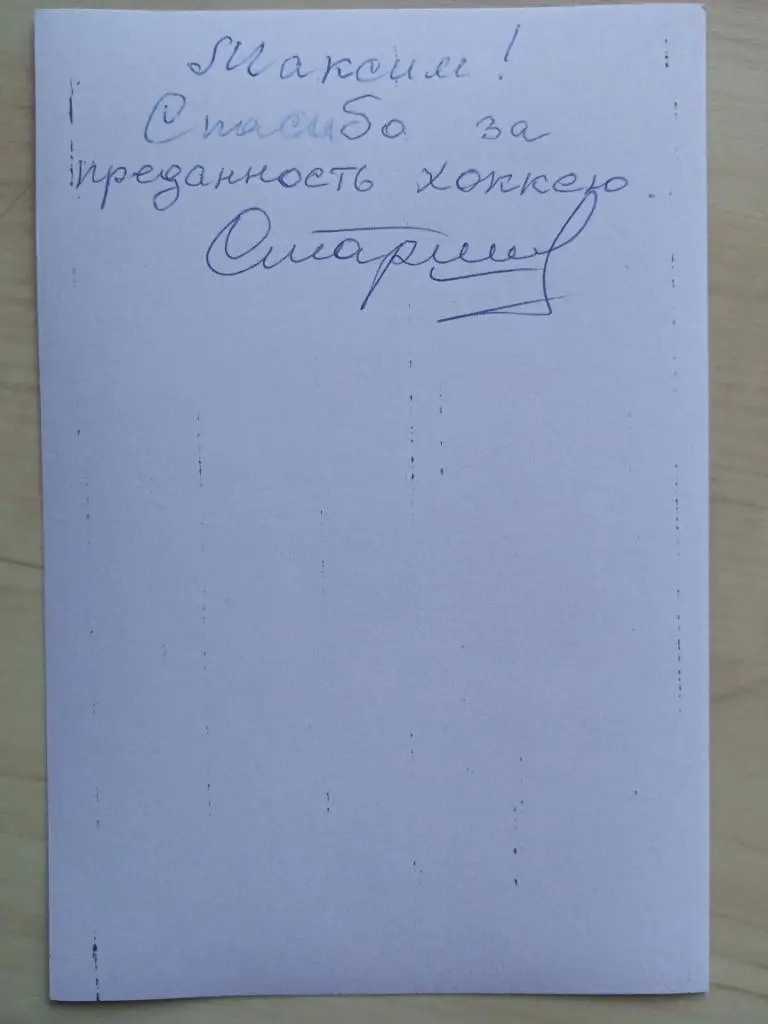 Максим!
Спасибо за
преданность хоккею.